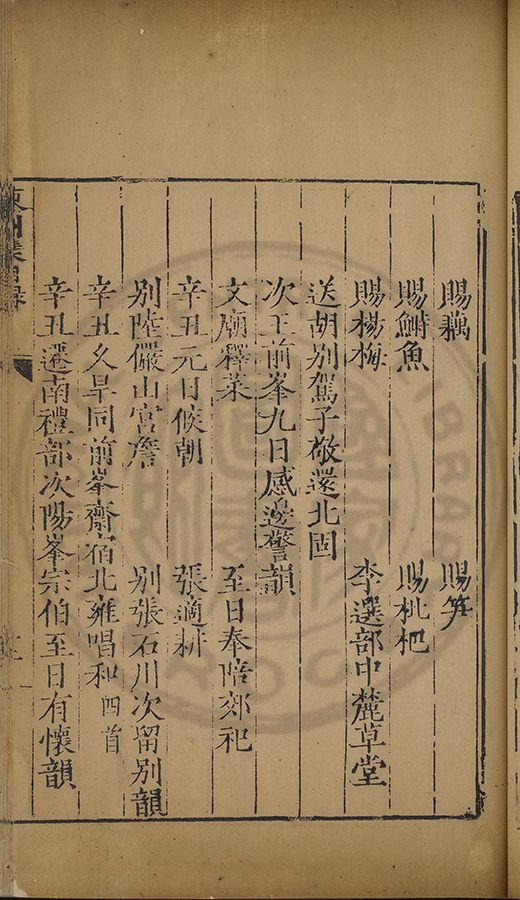 賜藕 賜笋
賜鰣魚 賜枇杷
賜楊梅 李選部中麓草堂
送胡别駕子敬還北固
次王前峯九日感邊警韻
文廟釋菜 至日奉陪郊祀
辛丑元日候朝 張適耕
别陸儼山宫詹 别張石川次留别韻
辛丑久旱同前峯齋宿北雍唱和四首
辛丑遷南禮部次陽峯宗伯至日有懷韻